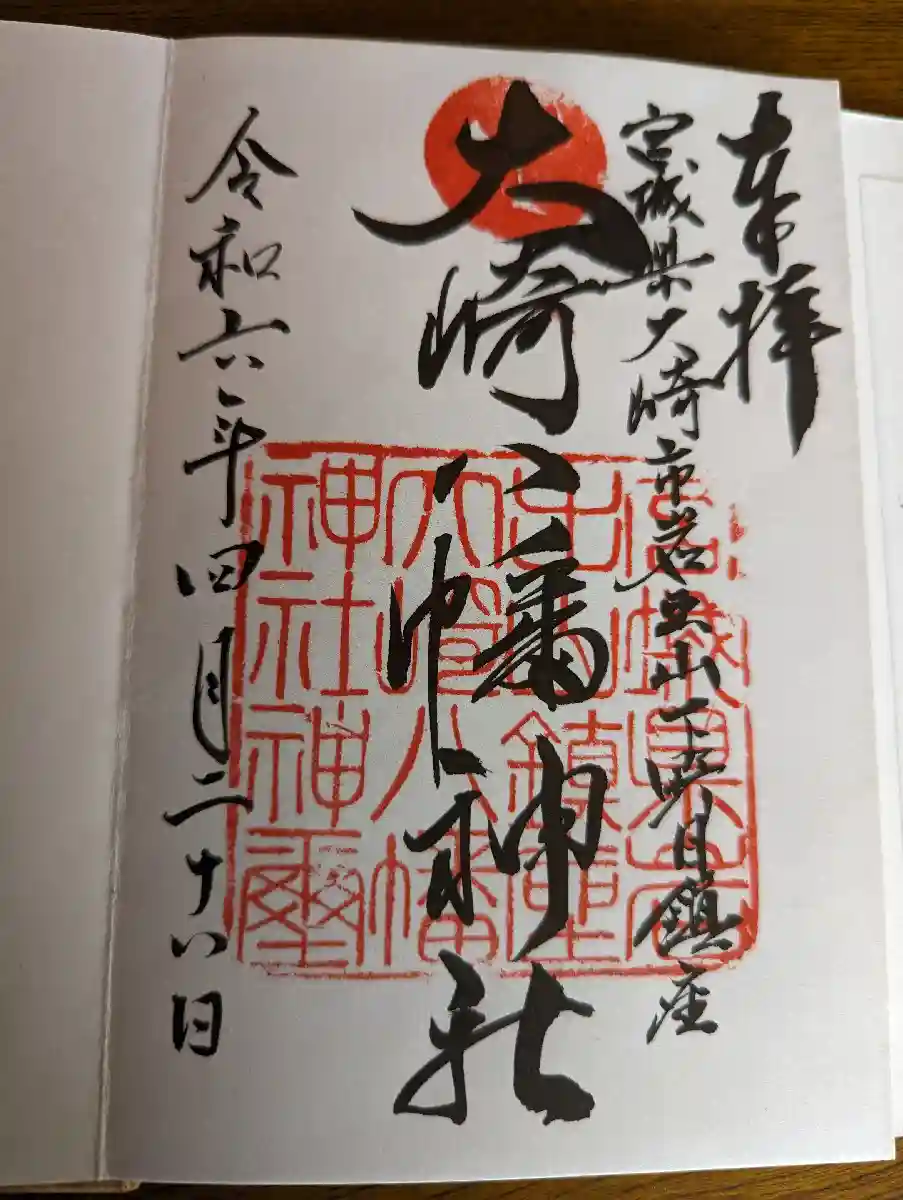 奉拝
宮城県大崎市岩出山下野目鎮座
大崎八幡神社
令和六年四月二十八日
宮城県岩
出山鎮座
大崎八幡
神社神璽